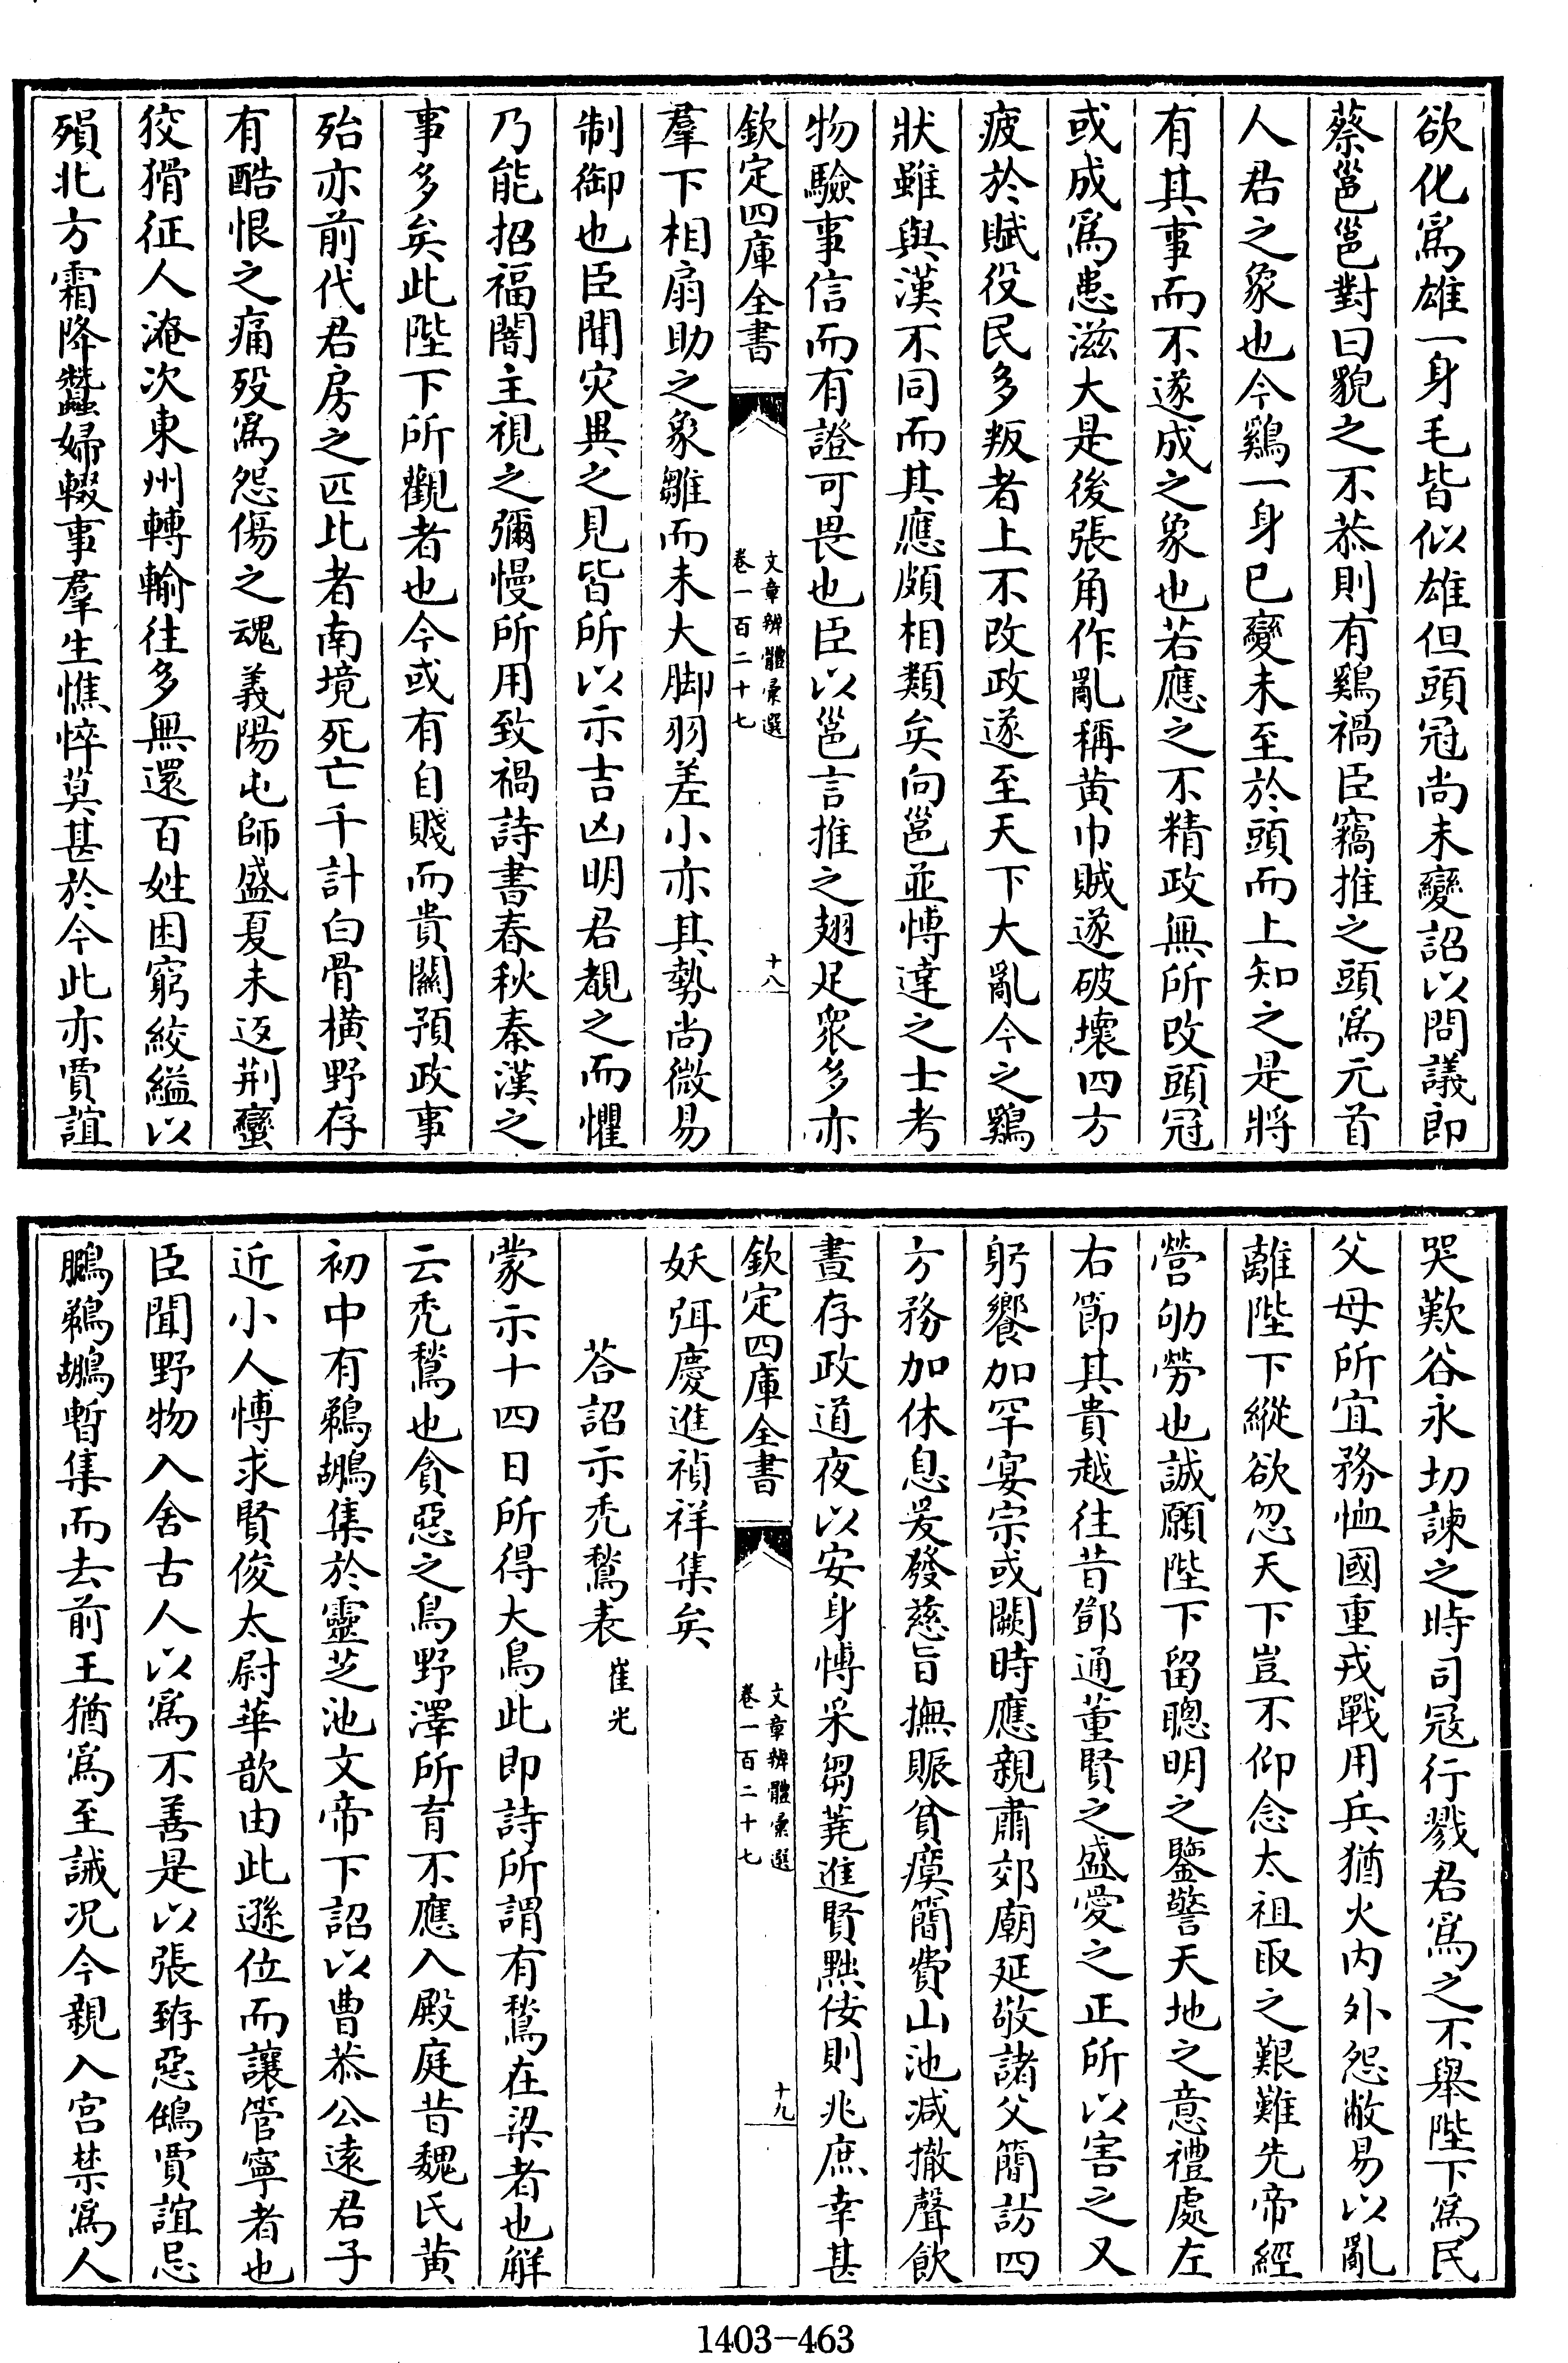 欲化爲雄一身毛皆似雄但頭冠尚未變詔以問議郎
蔡邕邕對曰貌之不恭則有鷄禍臣竊推之頭爲元首
人君之象也今鷄一身已變未至於頭而上知之是將
有其事而不遂成之象也若應之不精政無所改頭冠
或成爲患滋大是後張角作亂稱黄巾賊遂破壞四方
疲於賦役民多叛者上不改政遂至天下大亂今之鷄
狀雖與漢不同而其應頗相類矣向邕並博達之士考
物驗事信而有證可畏也臣以邕言推之翅足衆多亦
欽定四庫全書
文章辨體彙選
卷一百二十七
十八
羣下相扇助之象雛而未大脚羽差小亦其勢尚微易
制御也臣聞灾異之見皆所以示吉凶明君覩之而懼
乃能招福闇主視之彌慢所用致禍詩書春秋秦漢之
事多矣此陛下所觀者也今或有自賤而貴關預政事
殆亦前代君房之匹比者南境死亡千計白骨横野存
有酷恨之痛殁爲怨傷之魂義陽屯師盛夏未返荆蠻
狡猾征人淹次東州轉輸往多無還百姓困窮絞縊以
殞北方霜降蠶婦輟事羣生憔悴莫甚於今此亦賈誼
哭歎谷永切諫之時司寇行戮君爲之不舉陛下爲民
父母所宜務恤國重戎戰用兵猶火内外怨敝易以亂
離陛下縱欲忽天下豈不仰念太祖取之艱難先帝經
營劬勞也誠願陛下留聰明之鑒警天地之意禮處左
右節其貴越往昔鄧通董賢之盛愛之正所以害之又
躬饗加罕宴宗或闕時應親肅郊廟延敬諸父簡訪四
方務加休息爰發慈旨撫賑貧瘼簡費山池减撤聲飲
晝存政道夜以安身博采芻蕘進賢黜佞則兆庶幸甚
欽定四庫全書
文章辨體彙選
卷一百二十七
十九
妖弭慶進禎祥集矣
荅詔示禿鶖表 崔光
蒙示十四日所得大鳥此即詩所謂有鶖在梁者也解
云禿鶖也貪惡之鳥野澤所育不應入殿庭昔魏氏黄
初中有鵜鶘集於靈芝池文帝下詔以曹恭公遠君子
近小人博求賢俊太尉華歆由此遜位而讓管寧者也
臣聞野物入舍古人以爲不善是以張臶惡鵂賈誼忌
鵩鵜鶘暫集而去前王猶爲至誡况今親入宫禁爲人
1403-463